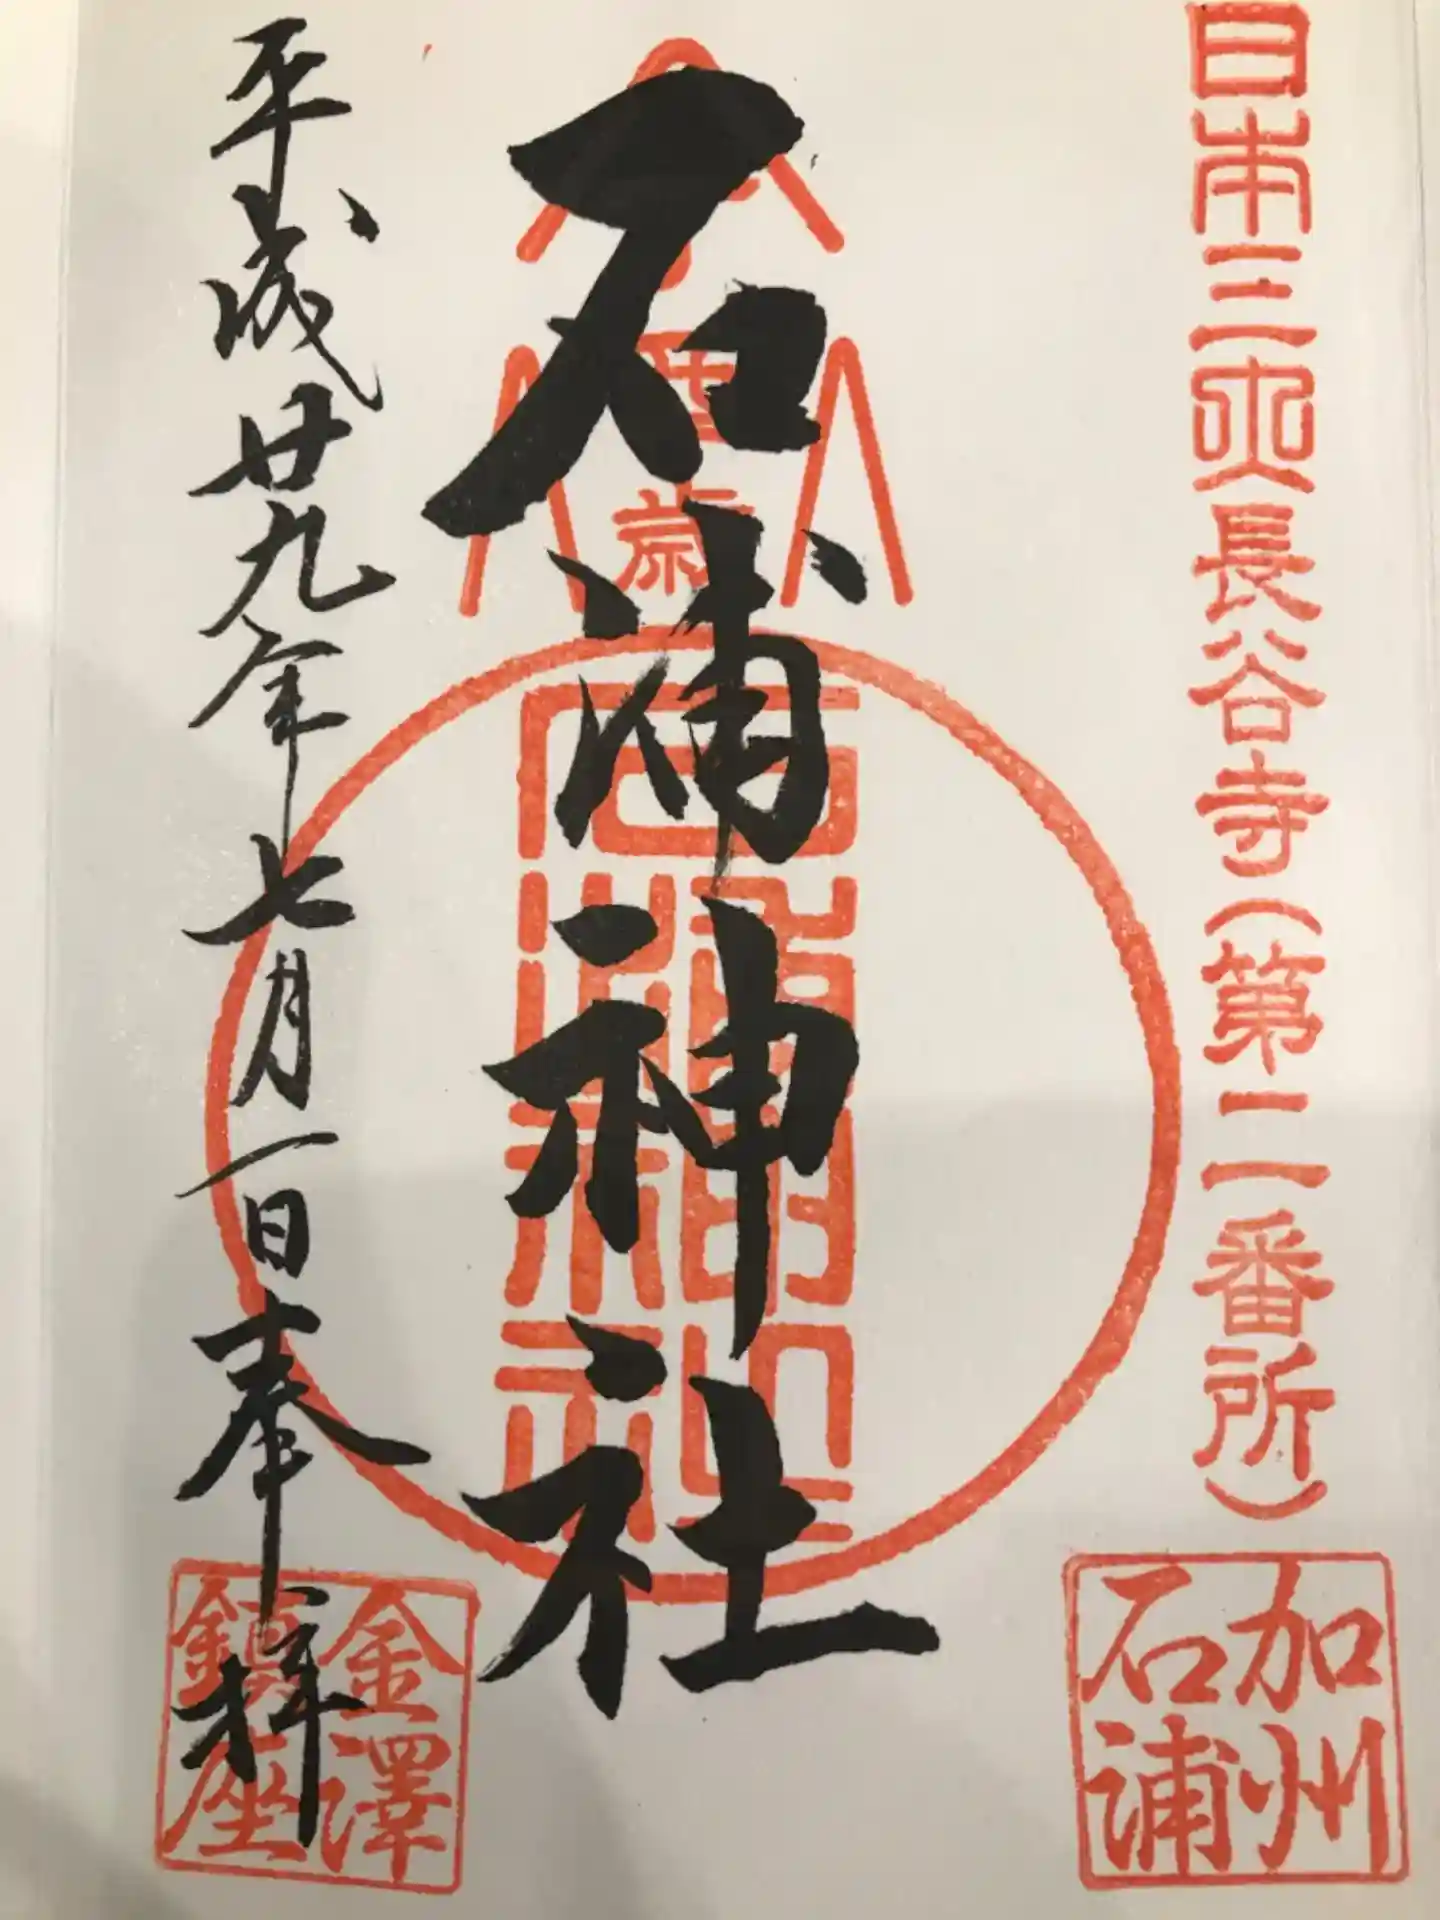 日本三大長谷寺(第二番所)
加州
石浦
石浦神社
石浦神社
平成廿九年七月一日奉拝
金澤
鎮座